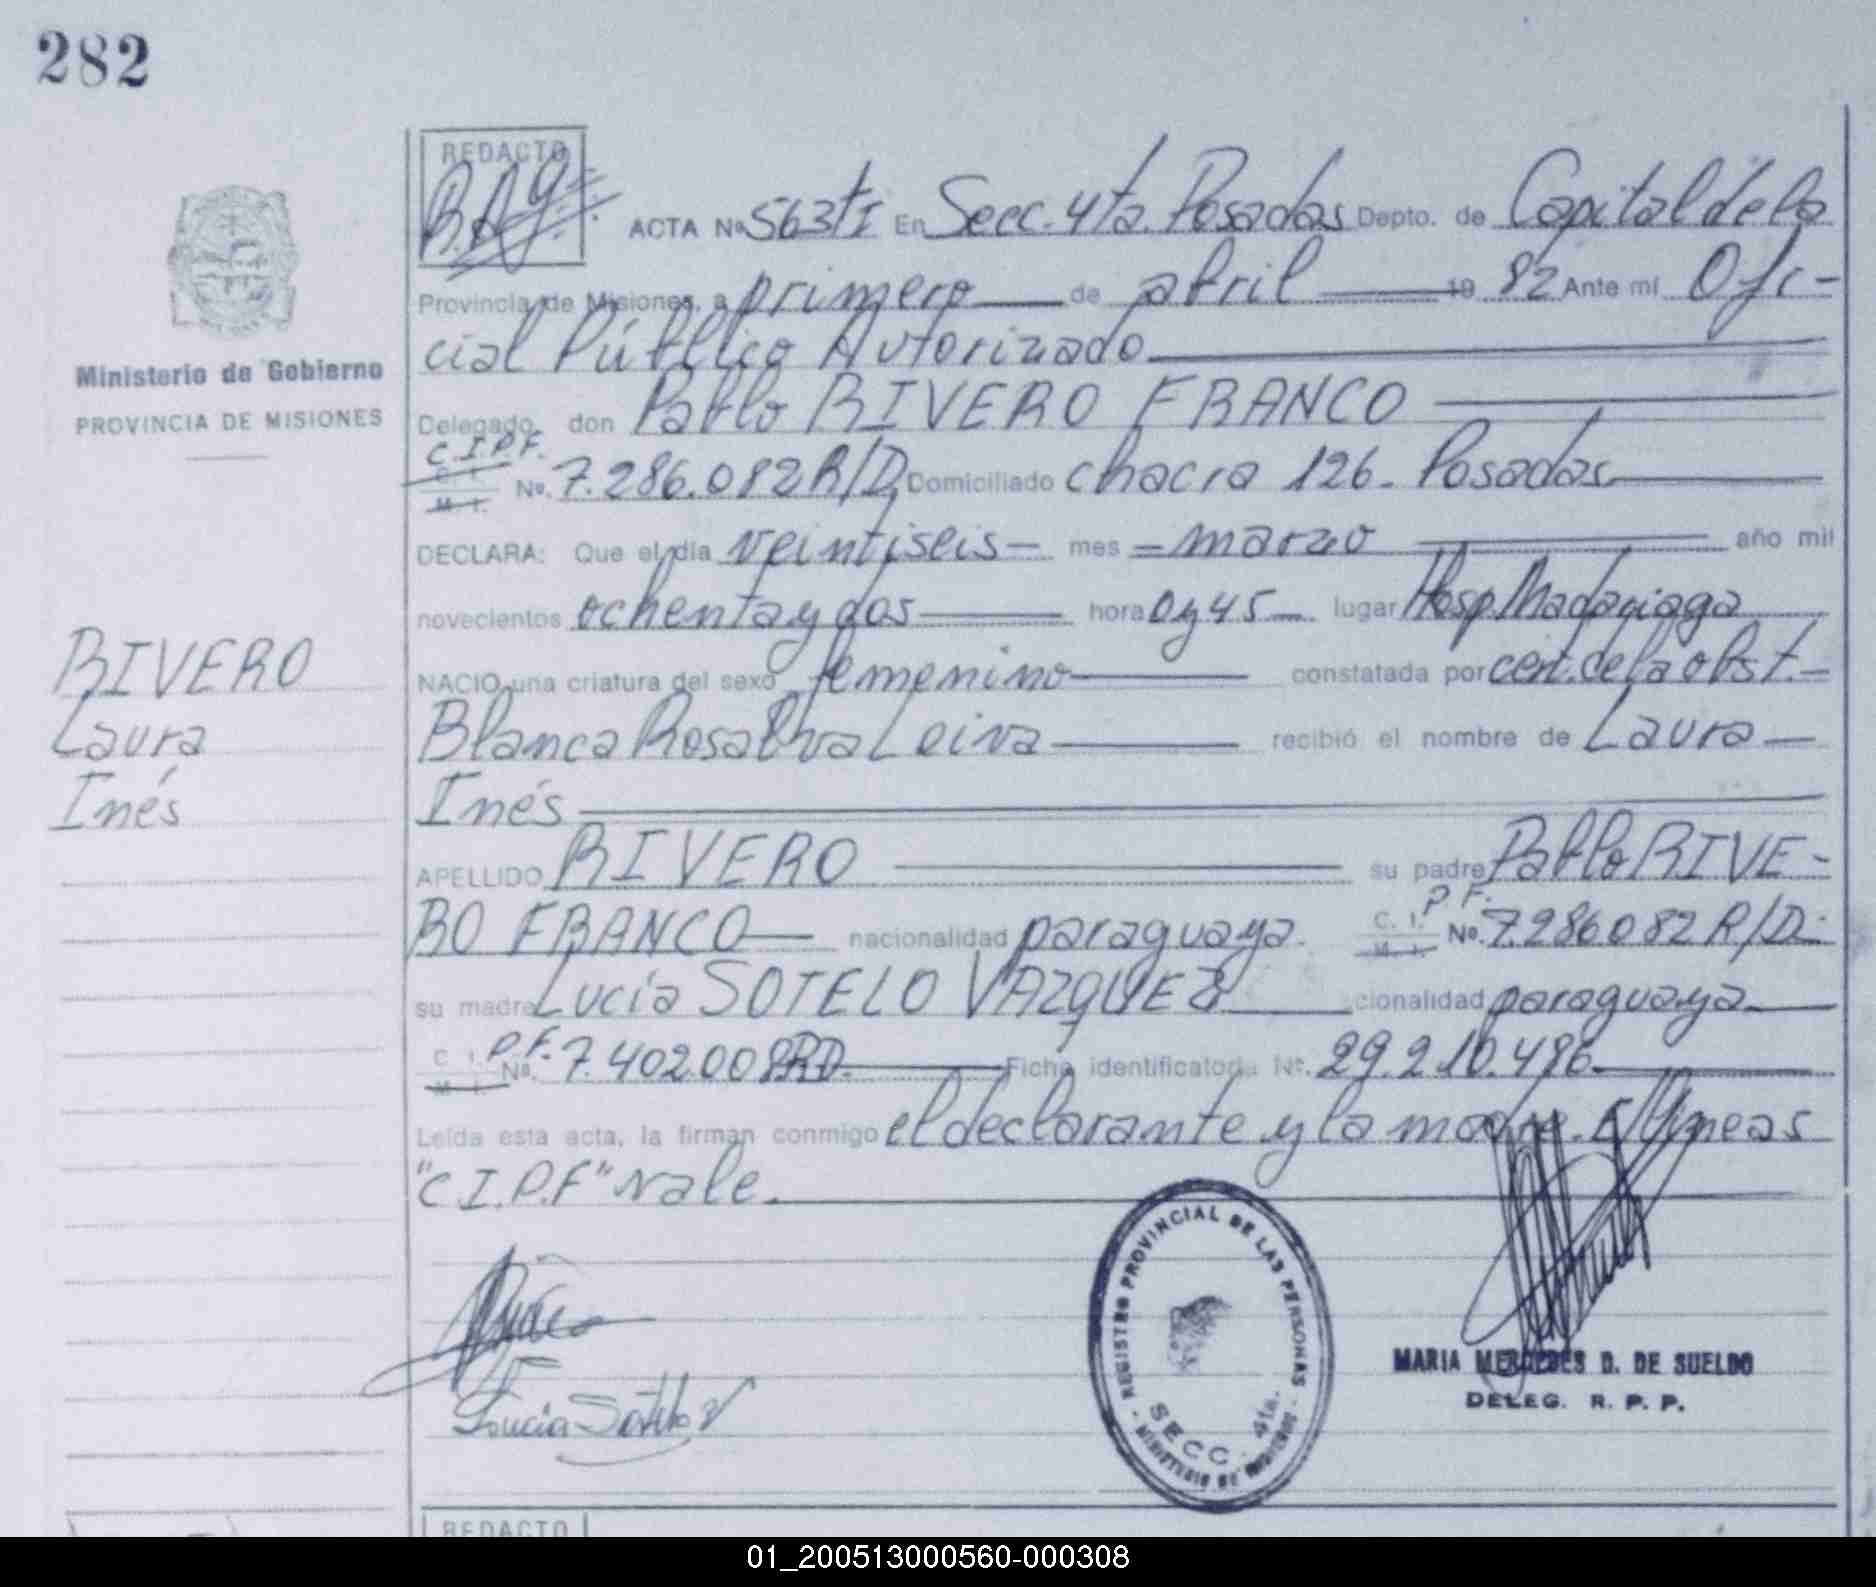 282
REDACTO
B.A.G.
ACTA Nº 563 tI En Secc. 4ta. Posadas Depto. de Capital de la
Provincia de Misiones, a primero de abril 19 82 Ante mí Ofi-
cial Público Autorizado
Delegado don Pablo RIVERO FRANCO
C.I.P.F.
C. I.
M. I. Nº. 7.286.082 R/D Domiciliado chacra 126. Posadas
DECLARA: Que el día veintiseis mes marzo año mil
novecientos ochenta y dos hora 0 y 45 lugar Hosp. Madariaga
NACIO una criatura del sexo femenino constatada por cert. de la obst.
Blanca Rosalva Leiva recibió el nombre de Laura
Inés
APELLIDO RIVERO su padre Pablo RIVE-
RO FRANCO nacionalidad paraguaya. C. I. P.F. M. I. Nº. 7.286082 R/D.
su madre Lucía SOTELO VAZQUEZ cionalidad paraguaya
C. I. P.F. M. I. Nº. 7.402.008 RD. Ficha identificatoria Nº. 29.210.486
Leída esta acta, la firman conmigo el declarante y la madre. E/líneas
"C.I.P.F" vale.
Lucia Sotelo V
REGISTRO PROVINCIAL DE LAS PERSONAS
SECC. 4ta.
MINISTERIO DE GOBIERNO
MARIA MERCEDES D. DE SUELDO
DELEG. R. P. P.
Ministerio de Gobierno
PROVINCIA DE MISIONES
RIVERO
Laura
Inés
REDACTO
01_200513000560-000308